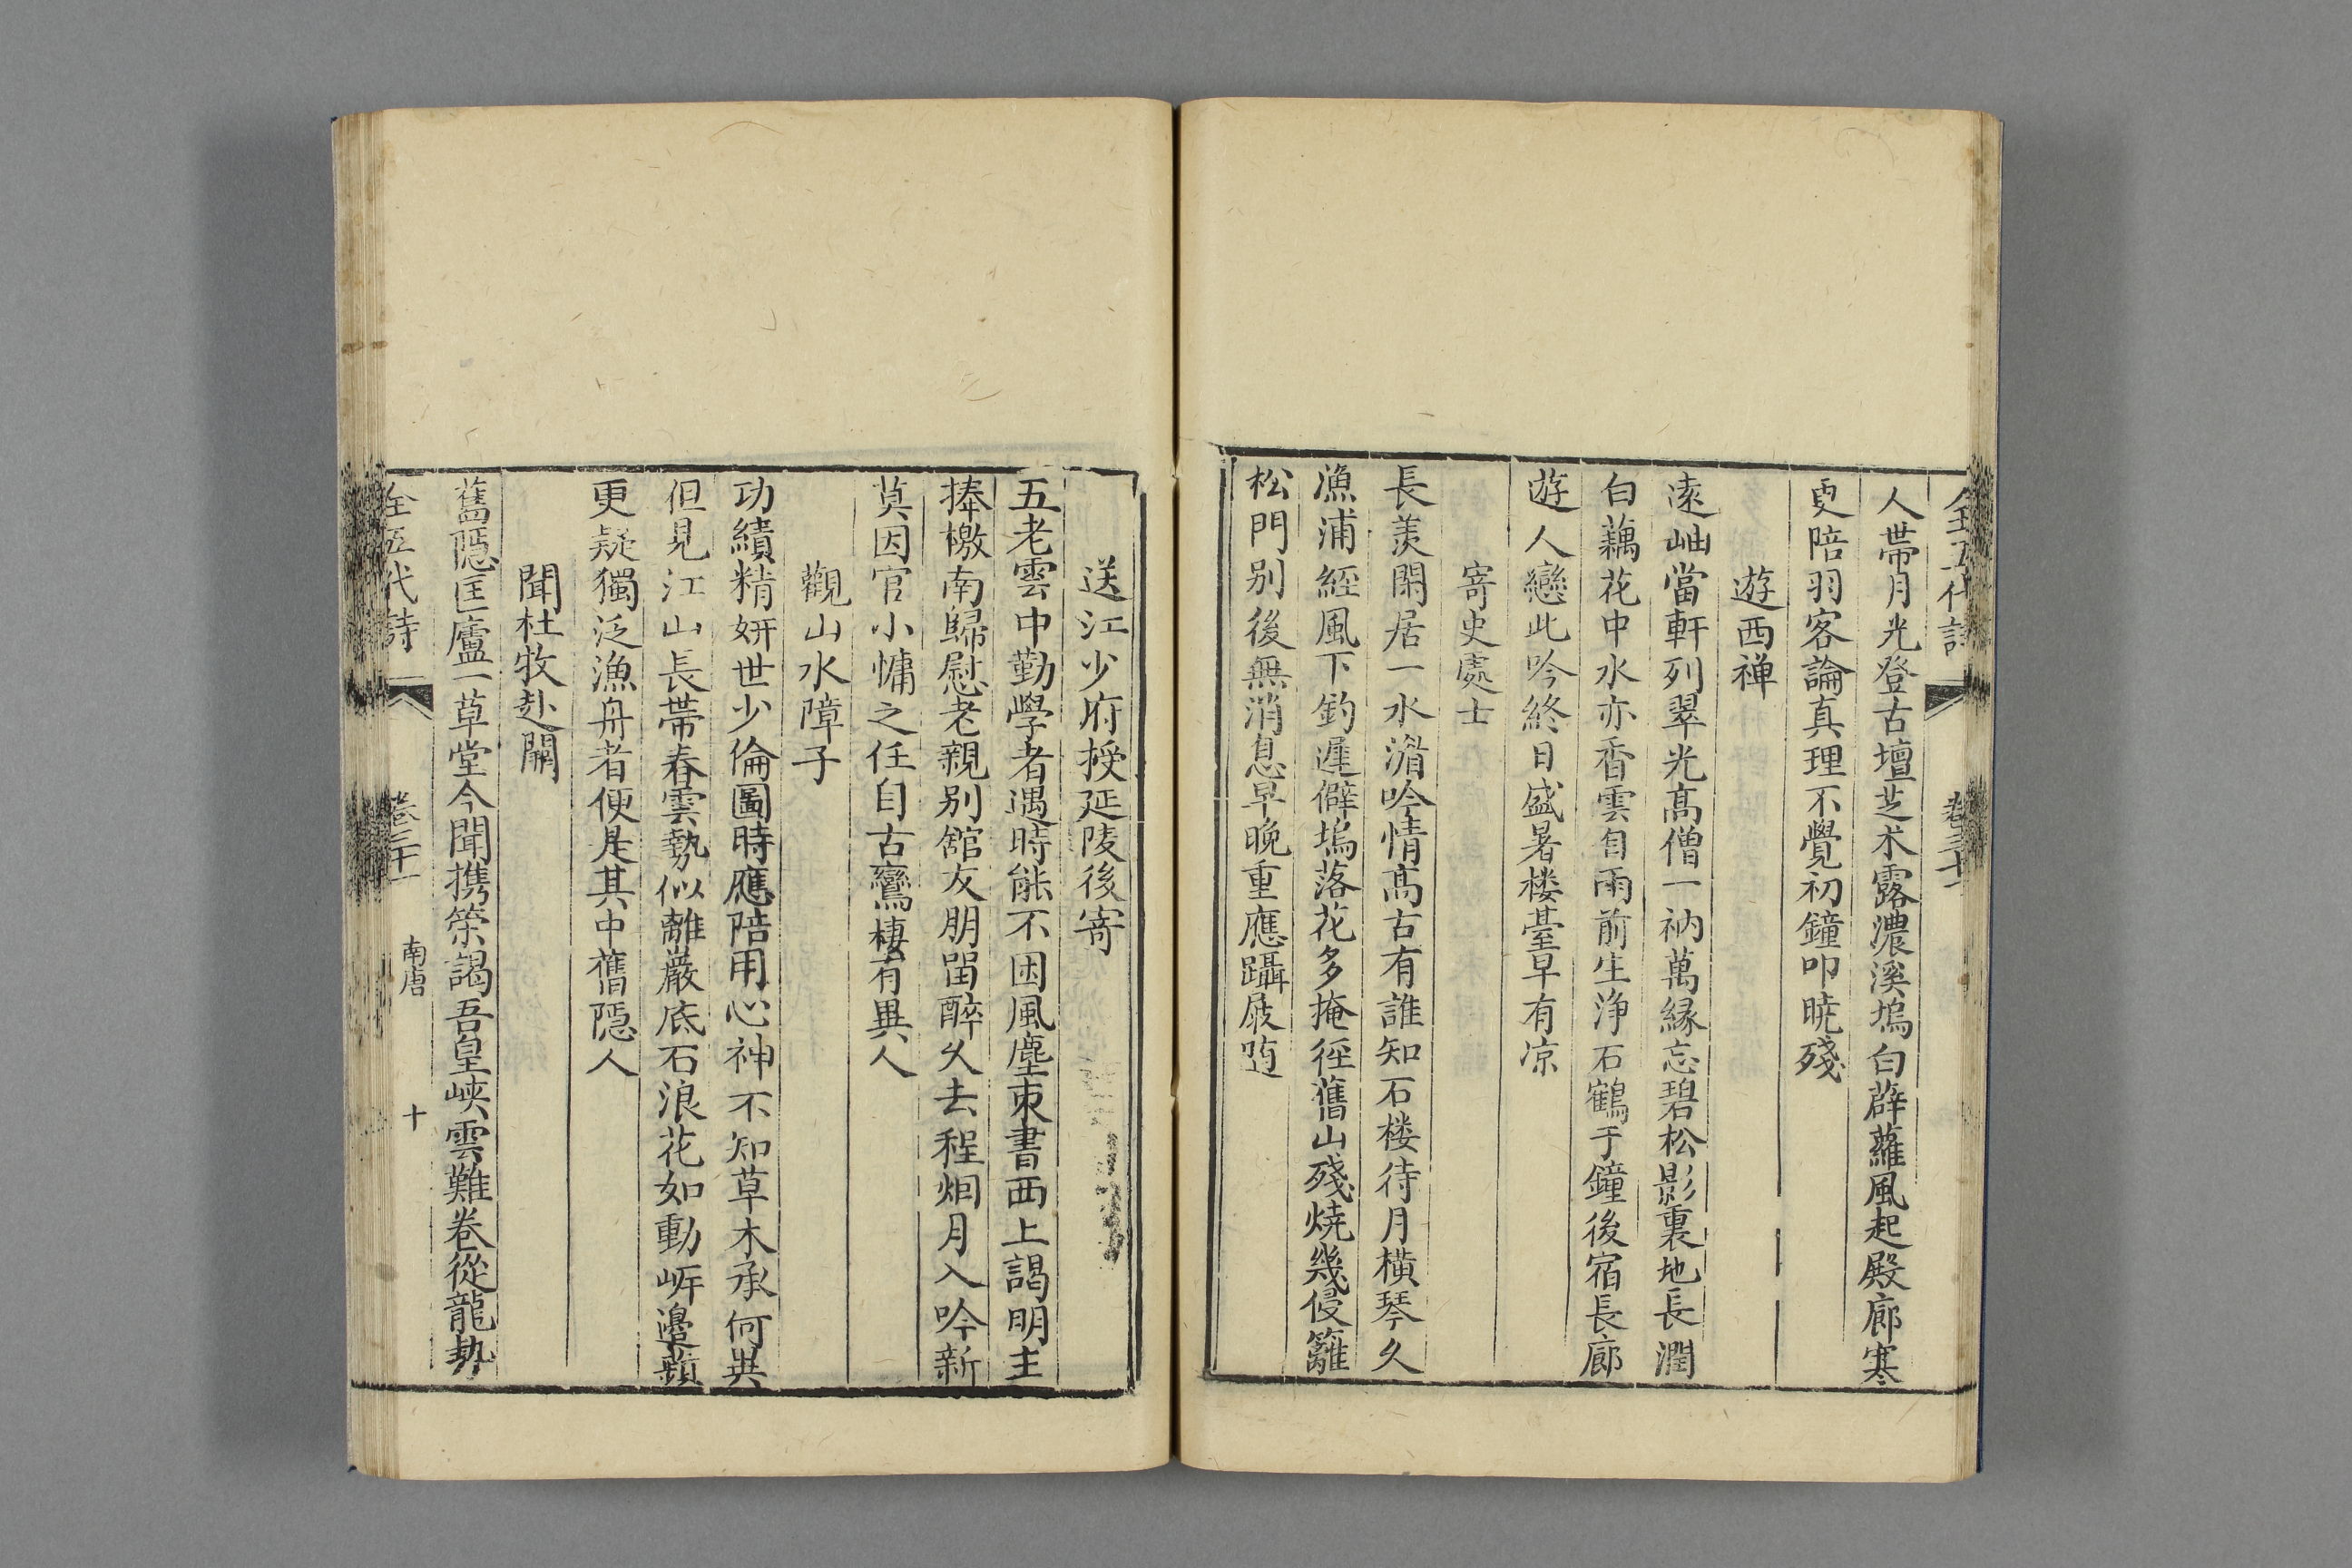 人帶月光登古壇芝术露濃溪塢白薜蘿風起殿廊寒
更陪羽客論真理不覺初鐘叩暁殘
遊西禅
遠岫當軒列翠光高僧一衲萬縁忘碧松影裏地長潤
白藕花中水亦香雲自雨前生浄石鶴于鐘後宿長廊
遊人戀此吟終日盛暑楼臺早有凉
寄史處士
長羨閑居一水湄吟情高古有誰知石楼待月横琴久
漁浦經風下釣遲僻塢落花多掩徑舊山殘焼幾侵籬
松門别後無消息早晚重應躡屐随
送江少府授延陵後寄
五老雲中勤學者遇時能不困風塵束書西上謁明主
捧檄南歸慰老親别舘友朋留醉久去程烟月入吟新
莫因官小慵之任自古鸞棲有異人
觀山水障子
功績精妍世少倫圖時應陪用心神不知草木承何異
但見江山長帶春雲勢似離巖底石浪花如動岍邊蘋
更疑獨泛漁舟者便是其中舊隱人
聞杜牧赴闕
舊隱匡廬一草堂今聞携䇿謁吾皇峡雲難卷從龍勢
全五代詩 卷三十一 南唐 十